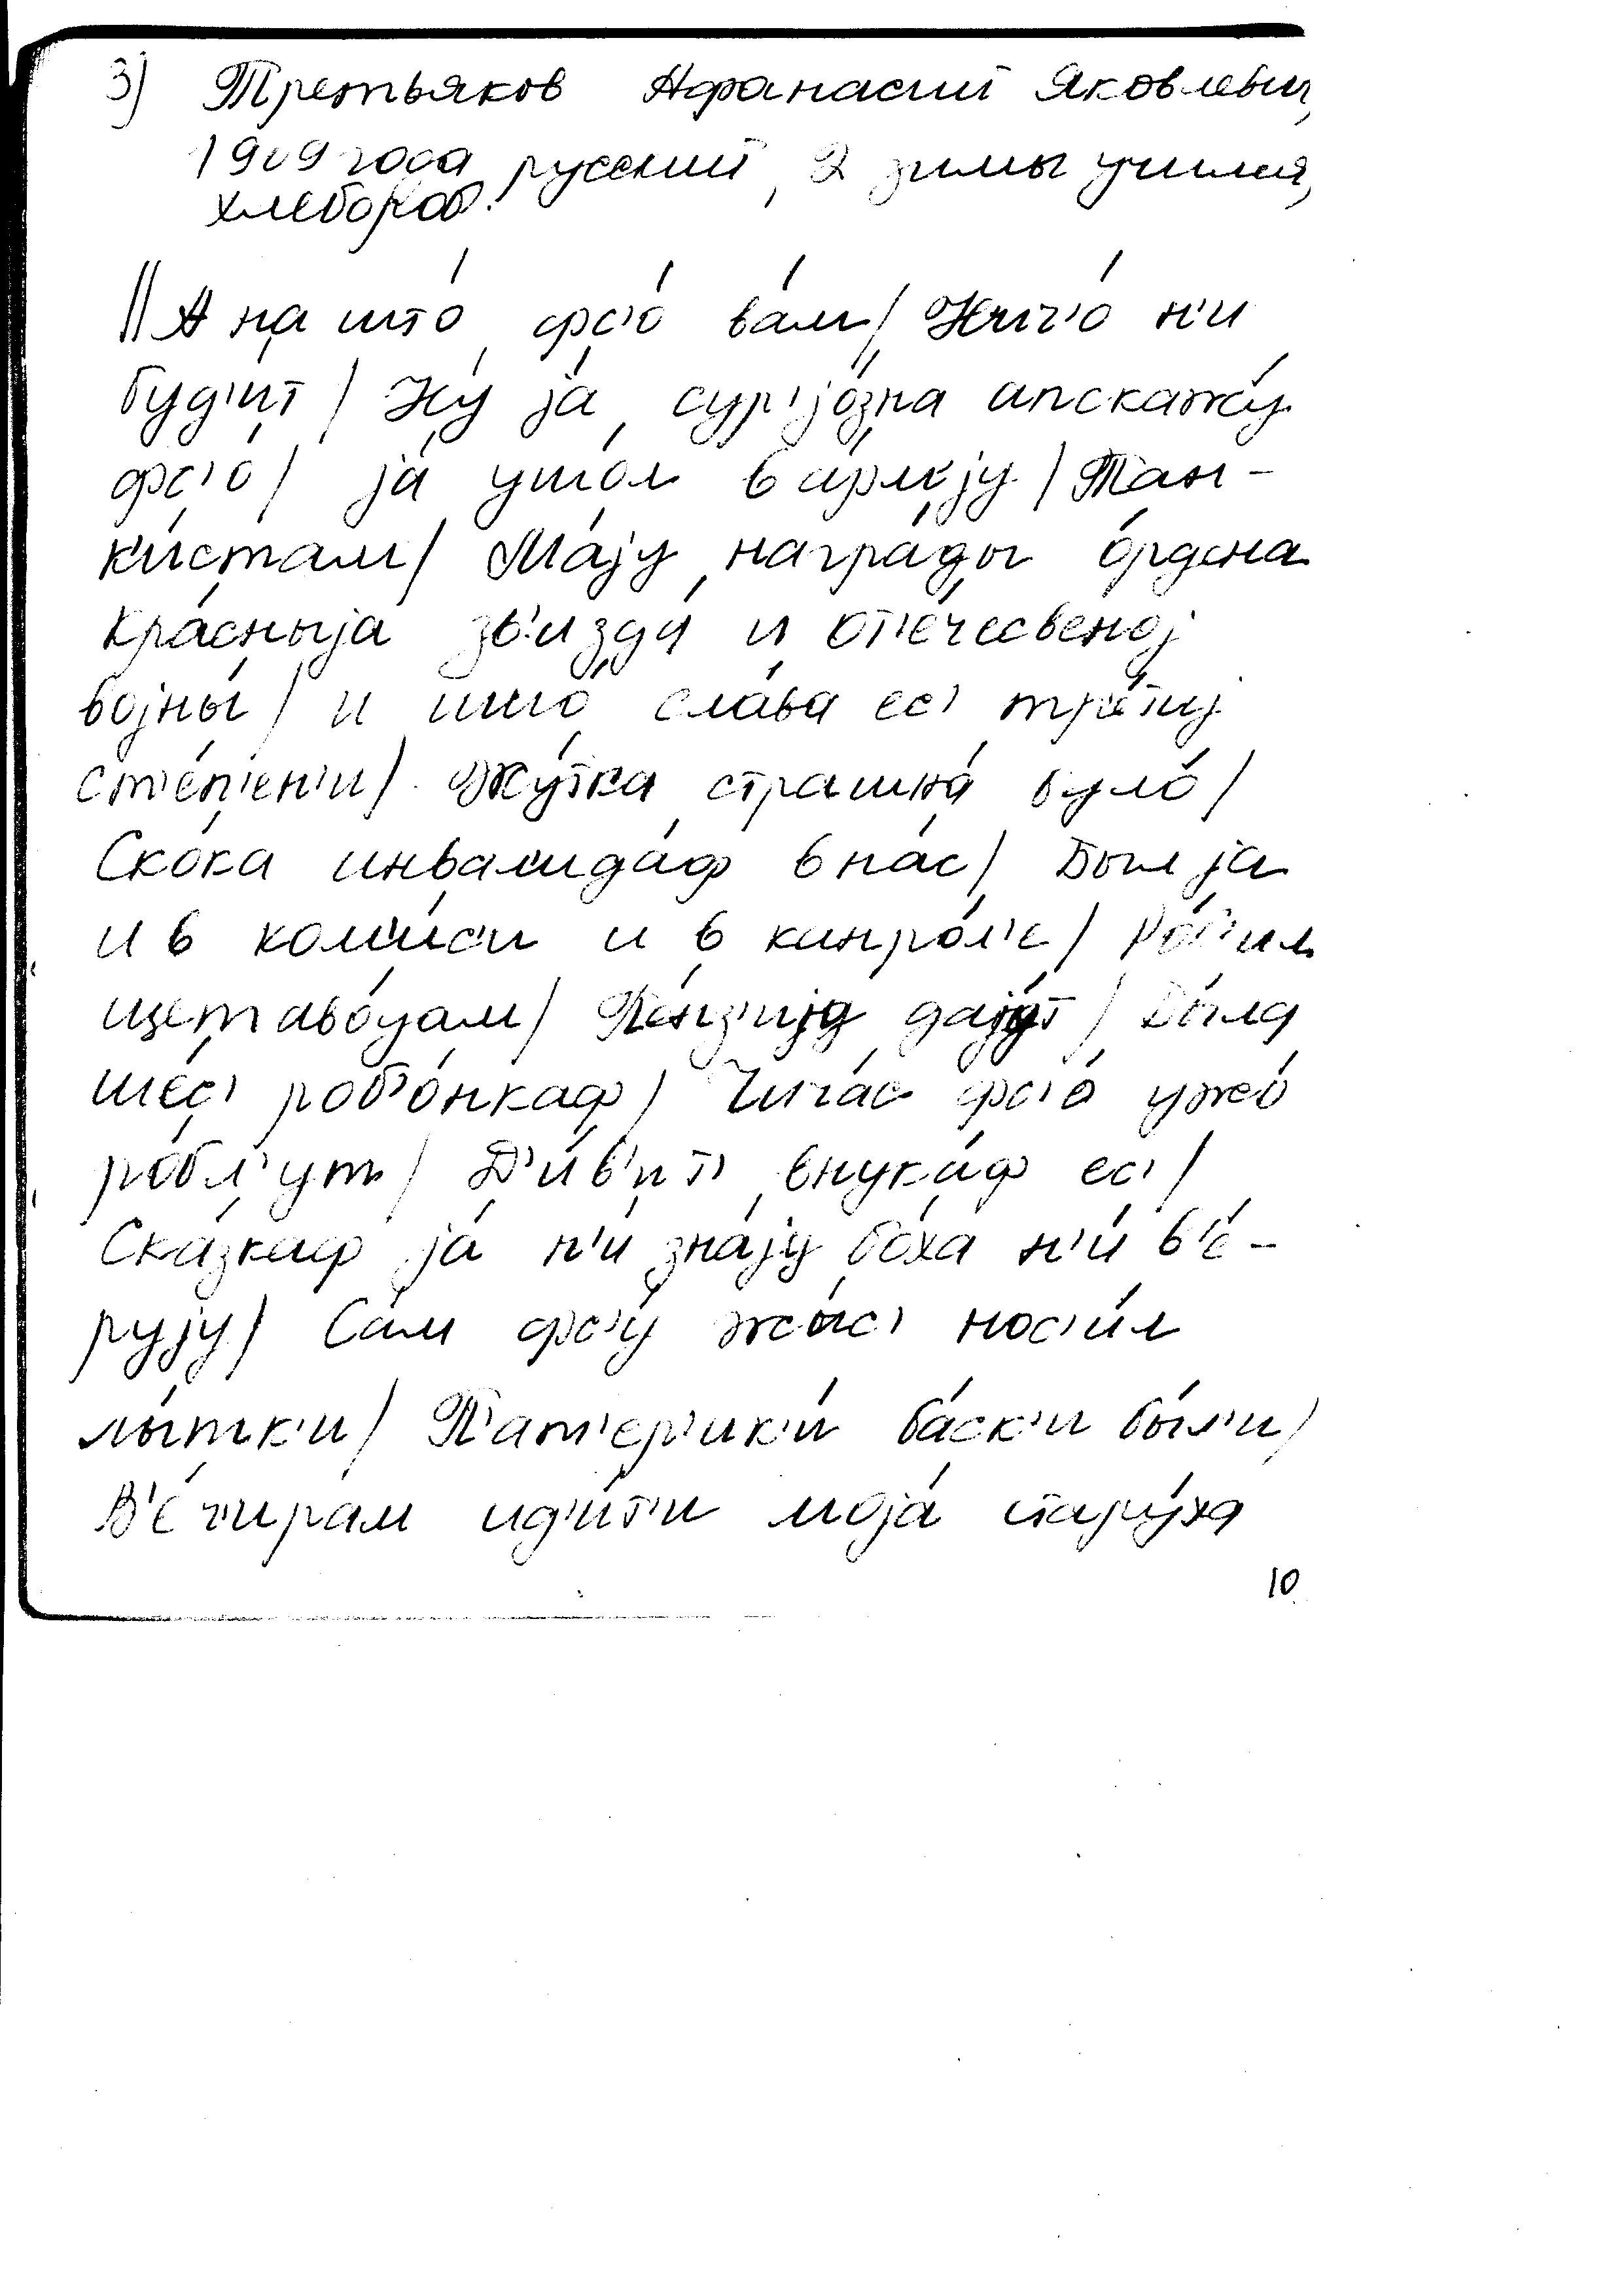 3) Третьяков Афанасий Яковлевич,
1909 года, русский, 2 зимы учился,
хлебороб.
|| А на што́ фс'о́ ва́м / Нич'о́ н'и
бу́д'ит / Ну́ ја́ сур'јо́зна апскажу́
фс'о́ / ја́ ушо́л в а́рм'ију / Тан-
к'и́стам / Ма́ју награ́ды о́рдена
Кра́сныја зв'изда́ и от'е́чесвеној
војны́ / и ишо́ сла́ва ес' тр'е́т'иј
ст'е́п'ен'и / Жу́тка страшна́ було́ /
Ско́ка инвал'ида́ф в на́с / Был ја
и в ком'и́с'и и в кипро́л'е / Ро́б'ил
щетаво́дам / Пе́нз'ију дају́т / Была
ше́с' роб'о́нкаф / Чича́с фс'о́ ужо́
ро́бл'ут / Д'и́в'ит' внука́ф ес' /
Ска́зкаф ја́ н'и́ зна́ју бо́ха н'и́ в'е́-
рују / Са́м фс'у́ жы́с' нос'и́л
лы́тк'и / П'ат'ер'ик'и́ ба́ск'и бы́л'и /
В'е́ч'ирам ид'и́т'и моја́ стару́ха
10